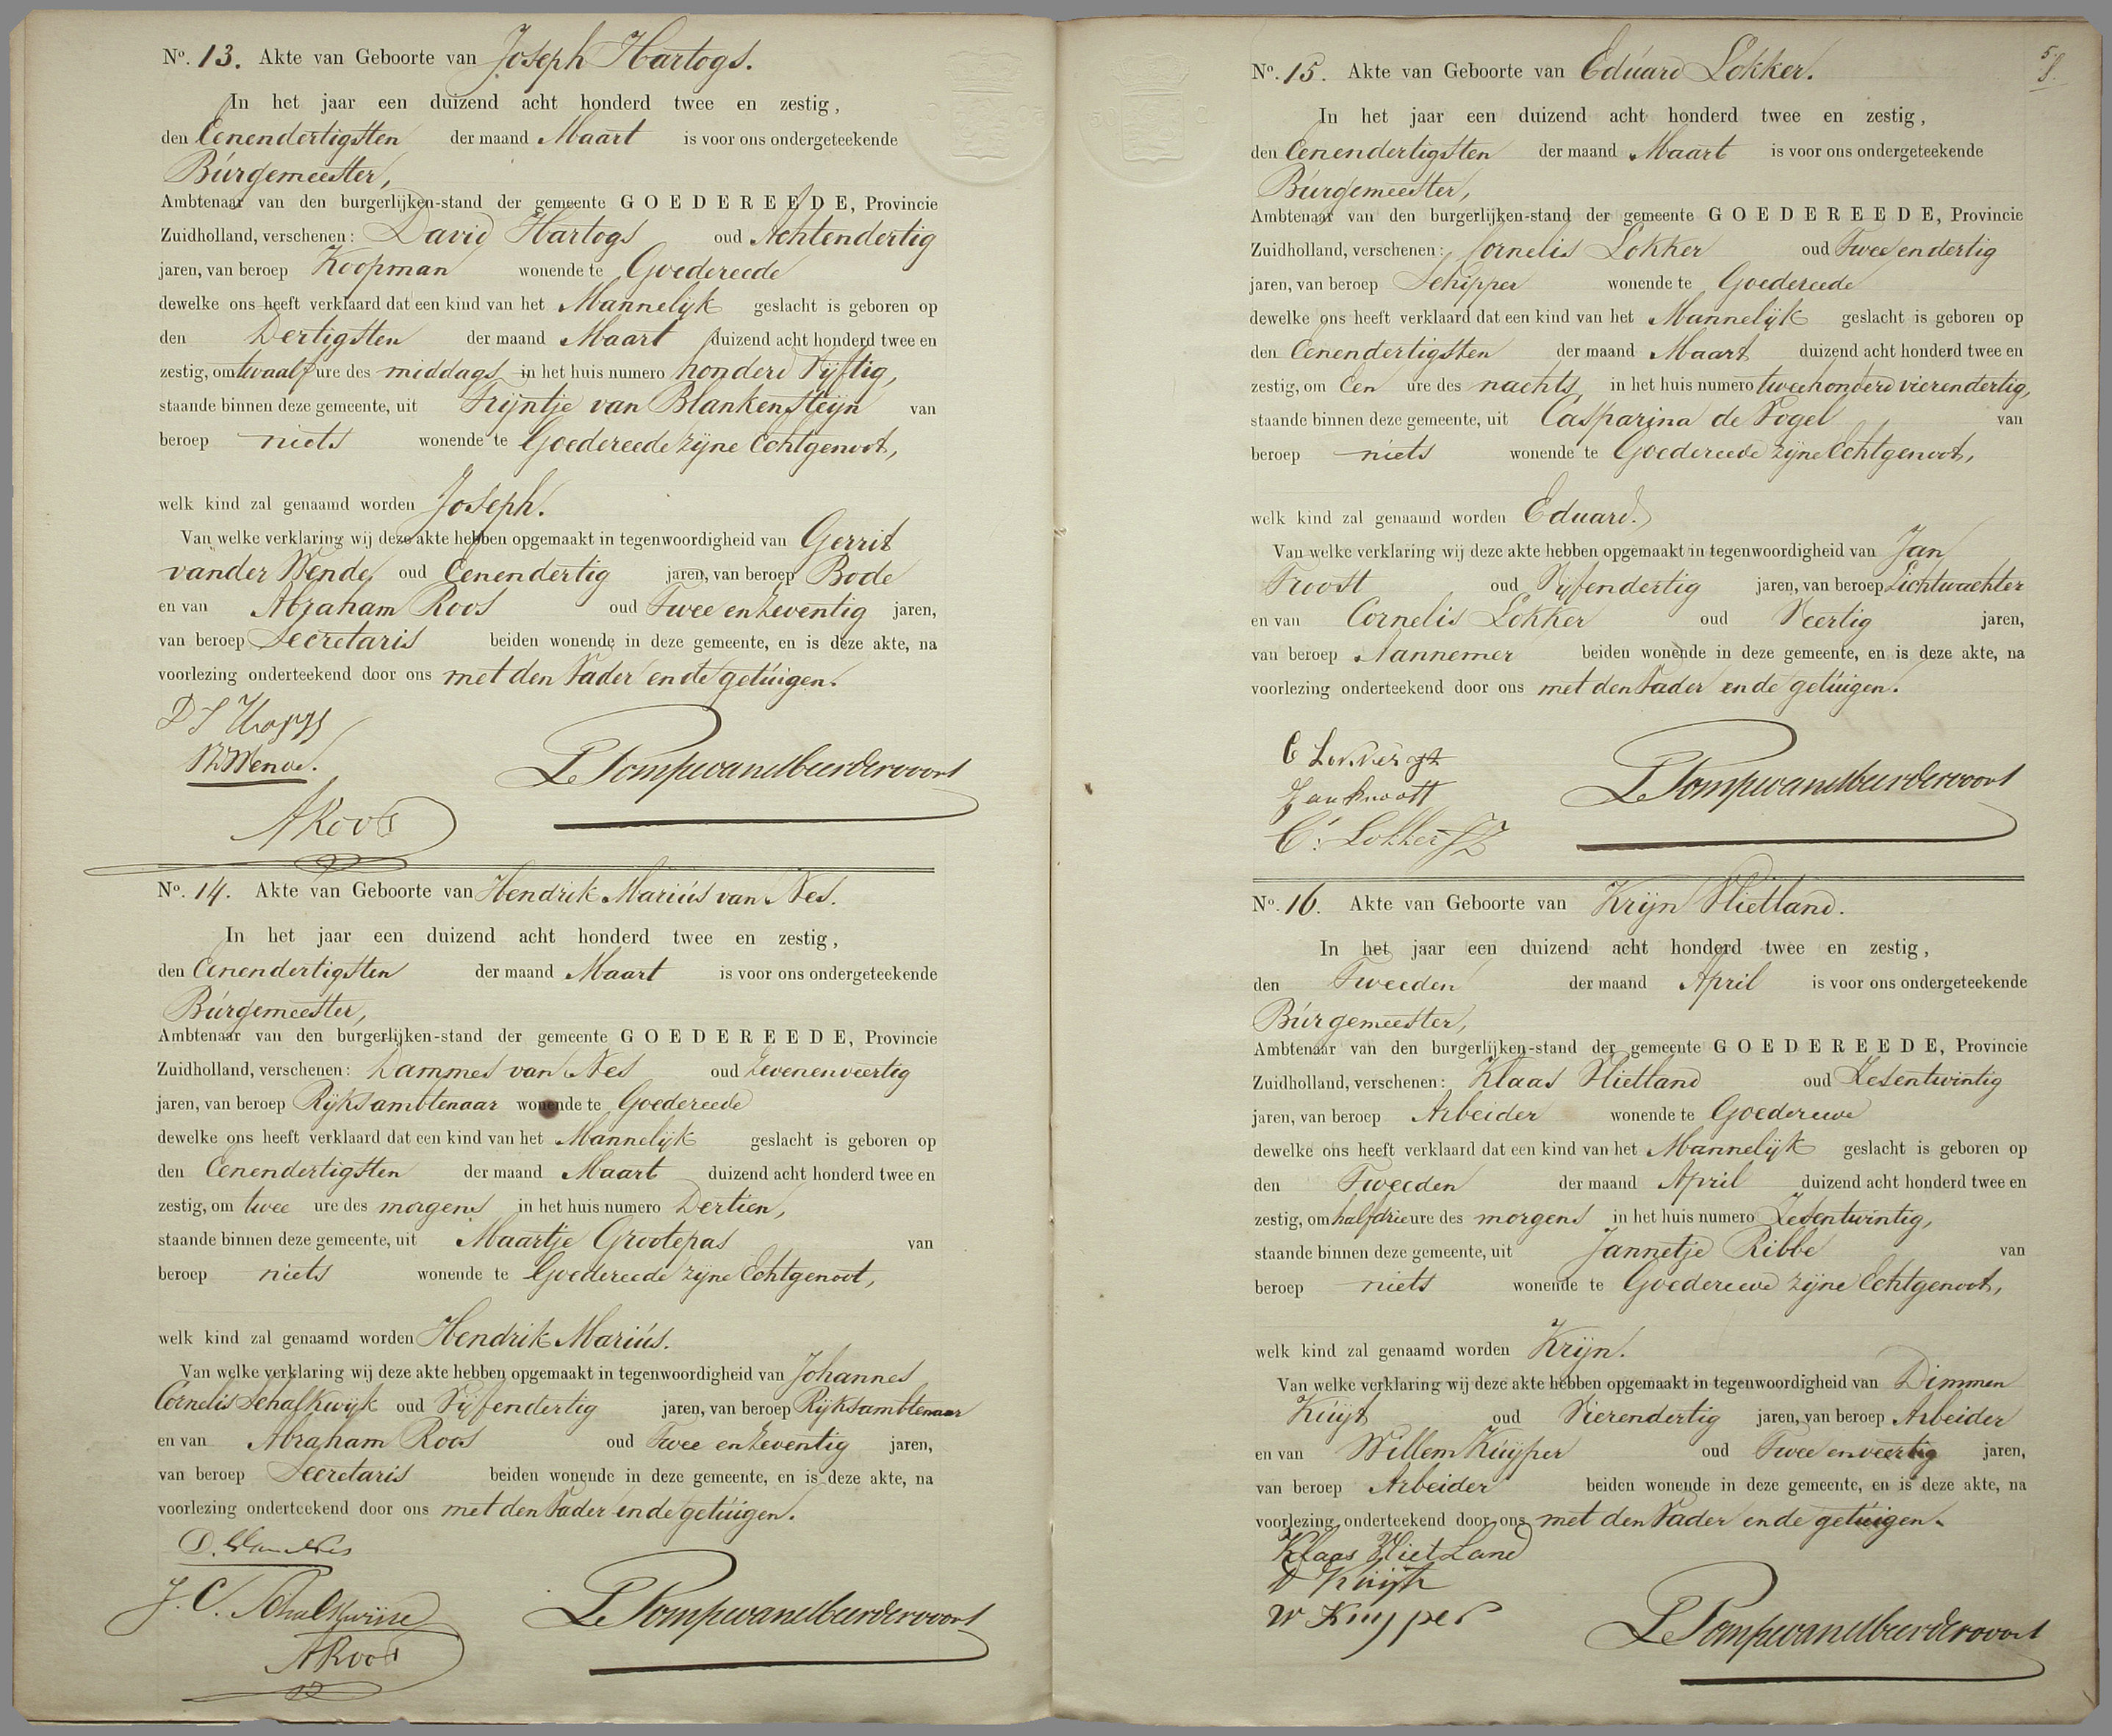 No. 13. Akte van Geboorte van Joseph Hartogs.
In het jaar een duizend acht honderd twee en zestig,
den Eenendertigsten der maand Maart is voor ons ondergeteekende
Burgemeester,
Ambtenaar van den burgerlijken-stand der gemeente GOEDEREEDE, Provincie
Zuidholland, verschenen: David Hartogs oud Achtendertig
jaren, van beroep Koopman wonende te Goedereede
dewelke ons heeft verklaard dat een kind van het Mannelijk geslacht is geboren op
den Dertigsten der maand Maart duizend acht honderd twee en
zestig, om twaalf ure des middags in het huis numero honderd Vijftig,
staande binnen deze gemeente, uit Trijntje van Blankensteijn van
beroep niets wonende te Goedereede zijne Echtgenoot,
welk kind zal genaamd worden Joseph.
Van welke verklaring wij deze akte hebben opgemaakt in tegenwoordigheid van Gerrit
vander Wende, oud Eenendertig jaren, van beroep Bode
en van Abraham Roos oud Twee en Zeventig jaren,
van beroep Secretaris beiden wonende in deze gemeente, en is deze akte, na
voorlezing onderteekend door ons met den Vader en de getuigen.
ARoos
No. 14. Akte van Geboorte van Hendrik Marius van Nes.
In het jaar een duizend acht honderd twee en zestig,
den Eenendertigsten der maand Maart is voor ons ondergeteekende
Burgemeester,
Ambtenaar van den burgerlijken-stand der gemeente GOEDEREEDE, Provincie
Zuidholland, verschenen: Dammes van Nes oud Zevenenveertig
jaren, van beroep Rijksambtenaar wonende te Goedereede
dewelke ons heeft verklaard dat een kind van het Mannelijk geslacht is geboren op
den Eenendertigsten der maand Maart duizend acht honderd twee en
zestig, om twee ure des morgens in het huis numero Dertien,
staande binnen deze gemeente, uit Maartje Grootepas van
beroep niets wonende te Goedereede zijne Echtgenoot,
welk kind zal genaamd worden Hendrik Marius.
Van welke verklaring wij deze akte hebben opgemaakt in tegenwoordigheid van Johannes
Cornelis Schalkwijk oud Vijfendertig jaren, van beroep Rijksambtenaar
en van Abraham Roos oud Twee en Zeventig jaren,
van beroep Secretaris beiden wonende in deze gemeente, en is deze akte, na
voorlezing onderteekend door ons met den Vader en de getuigen.
D. van Nes
J. C.
ARoos
No. 15. Akte van Geboorte van Eduard Lokker.
In het jaar een duizend acht honderd twee en zestig,
den Eenendertigsten der maand Maart is voor ons ondergeteekende
Burgemeester,
Ambtenaar van den burgerlijken-stand der gemeente GOEDEREEDE, Provincie
Zuidholland, verschenen: Cornelis Lokker oud Twee endertig
jaren, van beroep Schipper wonende te Goedereede
dewelke ons heeft verklaard dat een kind van het Mannelijk geslacht is geboren op
den Eenendertigsten der maand Maart duizend acht honderd twee en
zestig, om Een ure des nachts in het huis numero tweehonderd vierendertig,
staande binnen deze gemeente, uit Casparina de Vogel van
beroep niets wonende te Goedereede zijne Echtgenoot,
welk kind zal genaamd worden Eduard.
Van welke verklaring wij deze akte hebben opgemaakt in tegenwoordigheid van Jan
Troost oud Vijfendertig jaren, van beroep Lichtwachter
en van Cornelis Lokker oud Veertig jaren,
van beroep Aannemer beiden wonende in deze gemeente, en is deze akte, na
voorlezing onderteekend door ons met den Vader en de getuigen.
C Lokker
C: Lokker JZ
No. 16. Akte van Geboorte van Krijn Vlietland.
In het jaar een duizend acht honderd twee en zestig,
den Tweeden der maand April is voor ons ondergeteekende
Burgemeester,
Ambtenaar van den burgerlijken-stand der gemeente GOEDEREEDE, Provincie
Zuidholland, verschenen: Klaas Vlietland oud Zesentwintig
jaren, van beroep Arbeider wonende te Goedereede
dewelke ons heeft verklaard dat een kind van het Mannelijk geslacht is geboren op
den Tweeden der maand April duizend acht honderd twee en
zestig, om halfdrie ure des morgens in het huis numero Zesentwintig,
staande binnen deze gemeente, uit Jannetje Ribbe van
beroep niets wonende te Goedereede zijne Echtgenoot,
welk kind zal genaamd worden Krijn.
Van welke verklaring wij deze akte hebben opgemaakt in tegenwoordigheid van Dimmen
Kuijt oud Vierendertig jaren, van beroep Arbeider
en van Willem Kuijper oud Twee enveertig jaren,
van beroep Arbeider beiden wonende in deze gemeente, en is deze akte, na
voorlezing onderteekend door ons met den Vader en de getuigen.
Klaas VlietLand
D Kuijt
W Kuijper